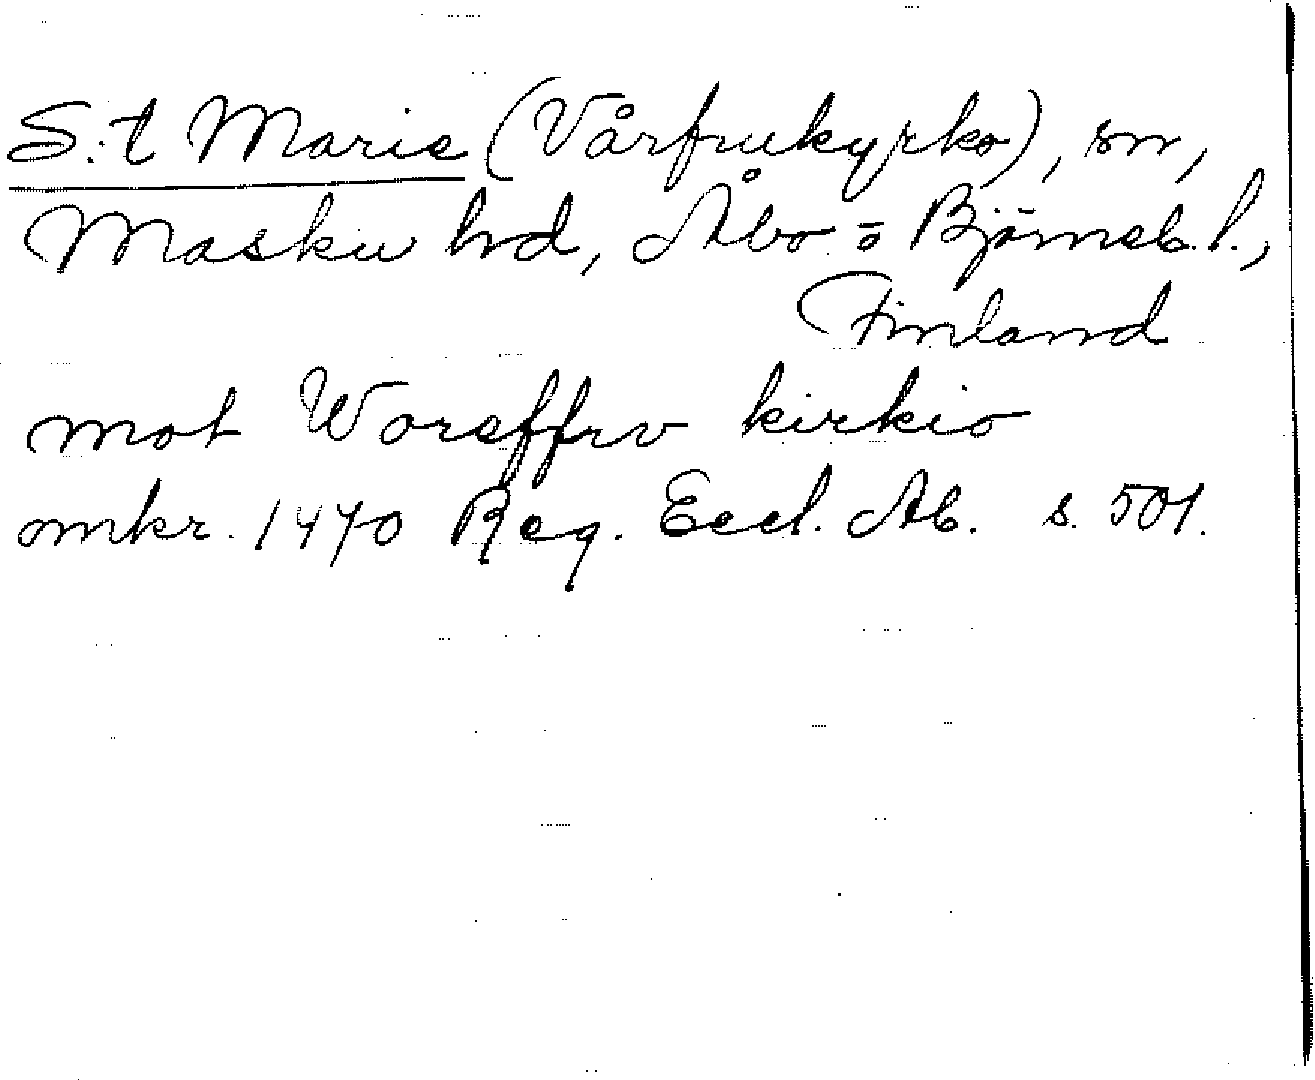 S:t Marie (Vårfrukyrko), sn,
Masku hrd, Åbo o Björneb. l.,
Finland
mot Worsffrv kirkio
omkr. 1470 Reg. Eccl. Ab. s. 501.